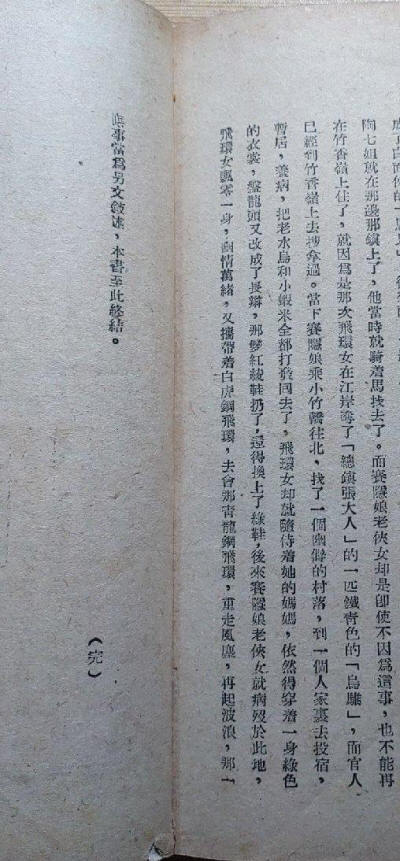 陶七姐就在那邊那鎮上了，他當時就騎着馬找去了。而賽隱娘老俠女却是卽使不因爲這事，也不能再
在竹香嶺上住了，就因爲是那次飛環女在江岸奪了「總鎮張大人」的一匹鐵靑色的「烏騅」，而官人
已經到竹香嶺上去搜拿過。當下賽隱娘乘小竹轎往北，找了一個幽僻的村落，到一個人家裏去投宿，
暫居，養病，把老水鳥和小蝦米全都打發囘去了，飛環女却就隨侍着她的媽媽，依然得穿着一身綠色
的衣裳，盤龍頭又改成了長辮，那雙紅綾鞋扔了，還得換上了綠鞋，後來賽隱娘老俠女就病歿於此地，
飛環女飄零一身，幽情萬緒，又攜帶着白虎鋼飛環，去會那靑龍鋼飛環，重走風塵，再起波浪，那一
𠋫事當爲另文敘述，本書至此終結。
（完）